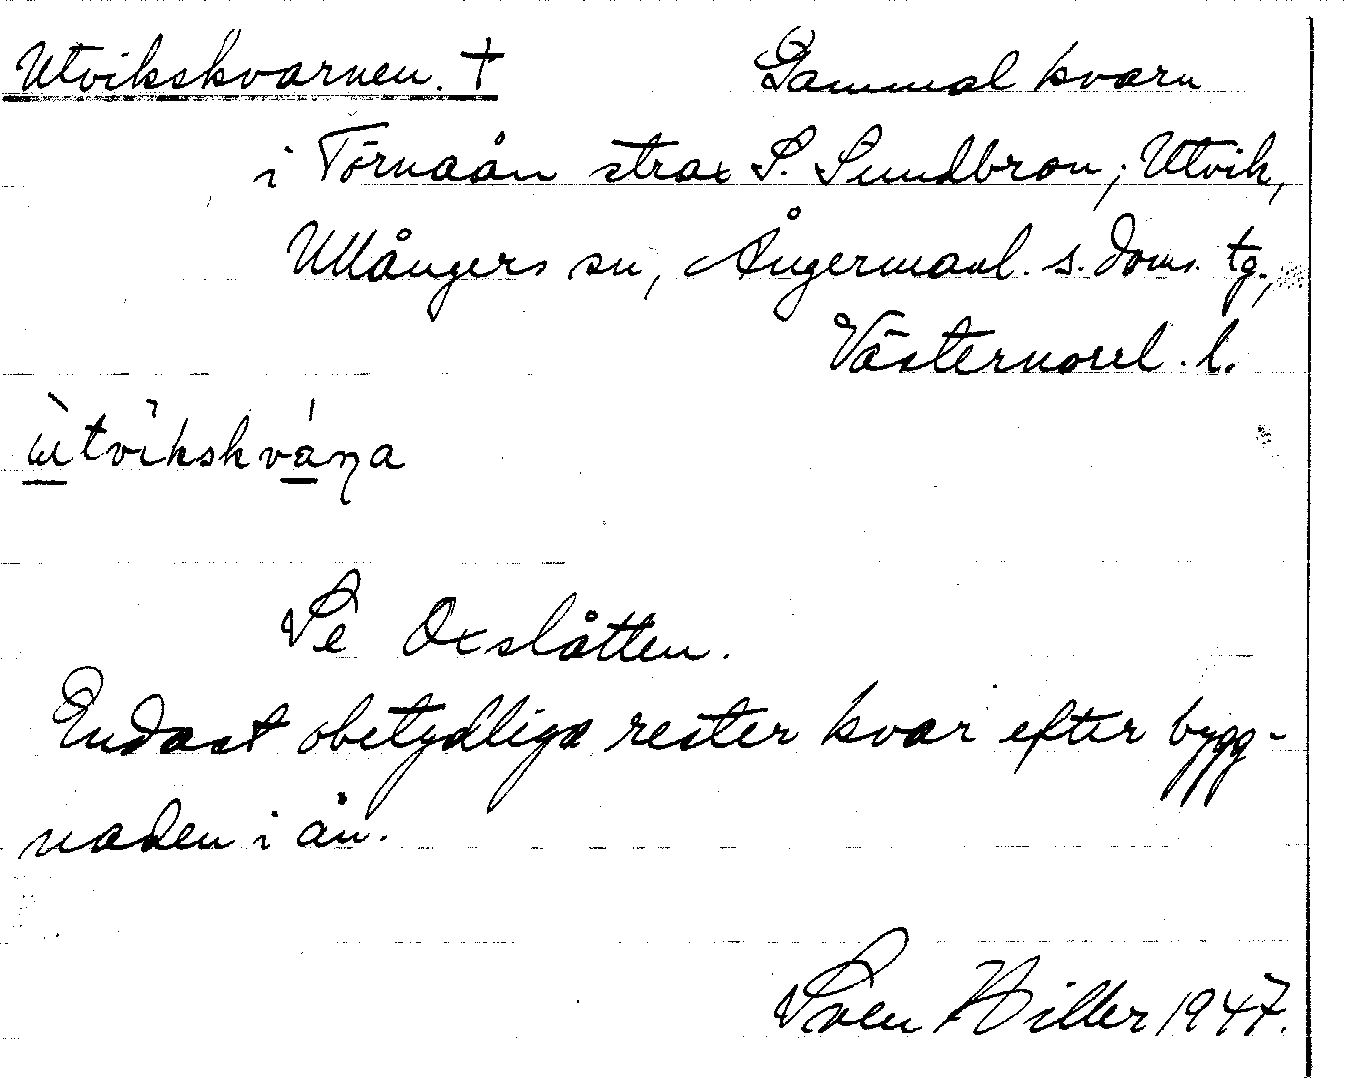 Utvikskvarnen. † Gammal kvarn
i Törnaån strax S. Sundbron; Utvik,
Ullångers sn, Ångermanl. s. doms. tg.,
Västernorrl. l.
Se Oxslåtten.
Endast obetydliga rester kvar efter bygg-
naden i ån.
Sven Hiller 1947.